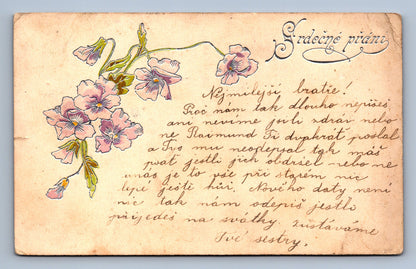 Srdečné přání
Nejmilejší bratře!
Proč nám tak dlouho nepíšeš
ani nevíme jseli zdráv nebo
ne Raimund Ti dvakrát poslal
a Tys mu neodepsal tak máš
psát jestli jich obdržel nebo ne
unás je to vše při starém nic
lepší ještě hůř. Nového doty není
nic tak nám odepiš jestli
přijedeš na svátky. zůstáváme
Tvé sestry.